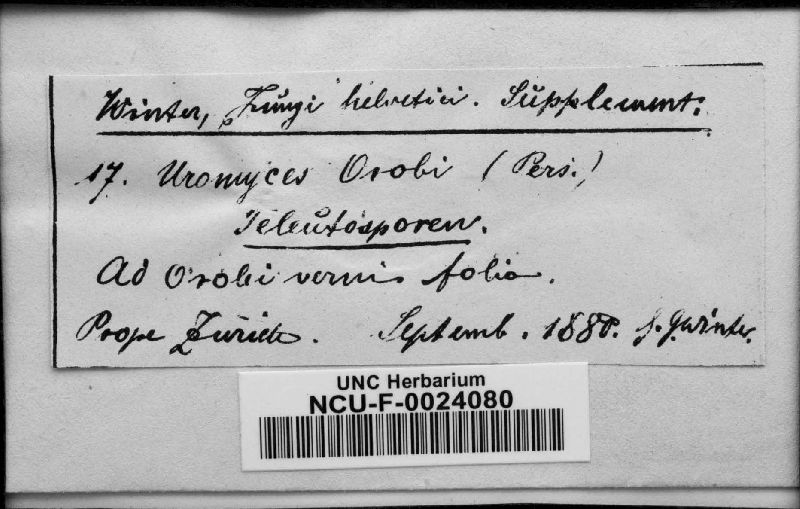 Winter, Fungi helvetici. Supplement.
17. Uromyces Orobi (Pers.)
Teleutosporen.
Ad Orobi verni folia.
Prope Zürich. Septemb. 1880. G. Winter.
UNC Herbarium
NCU-F-0024080